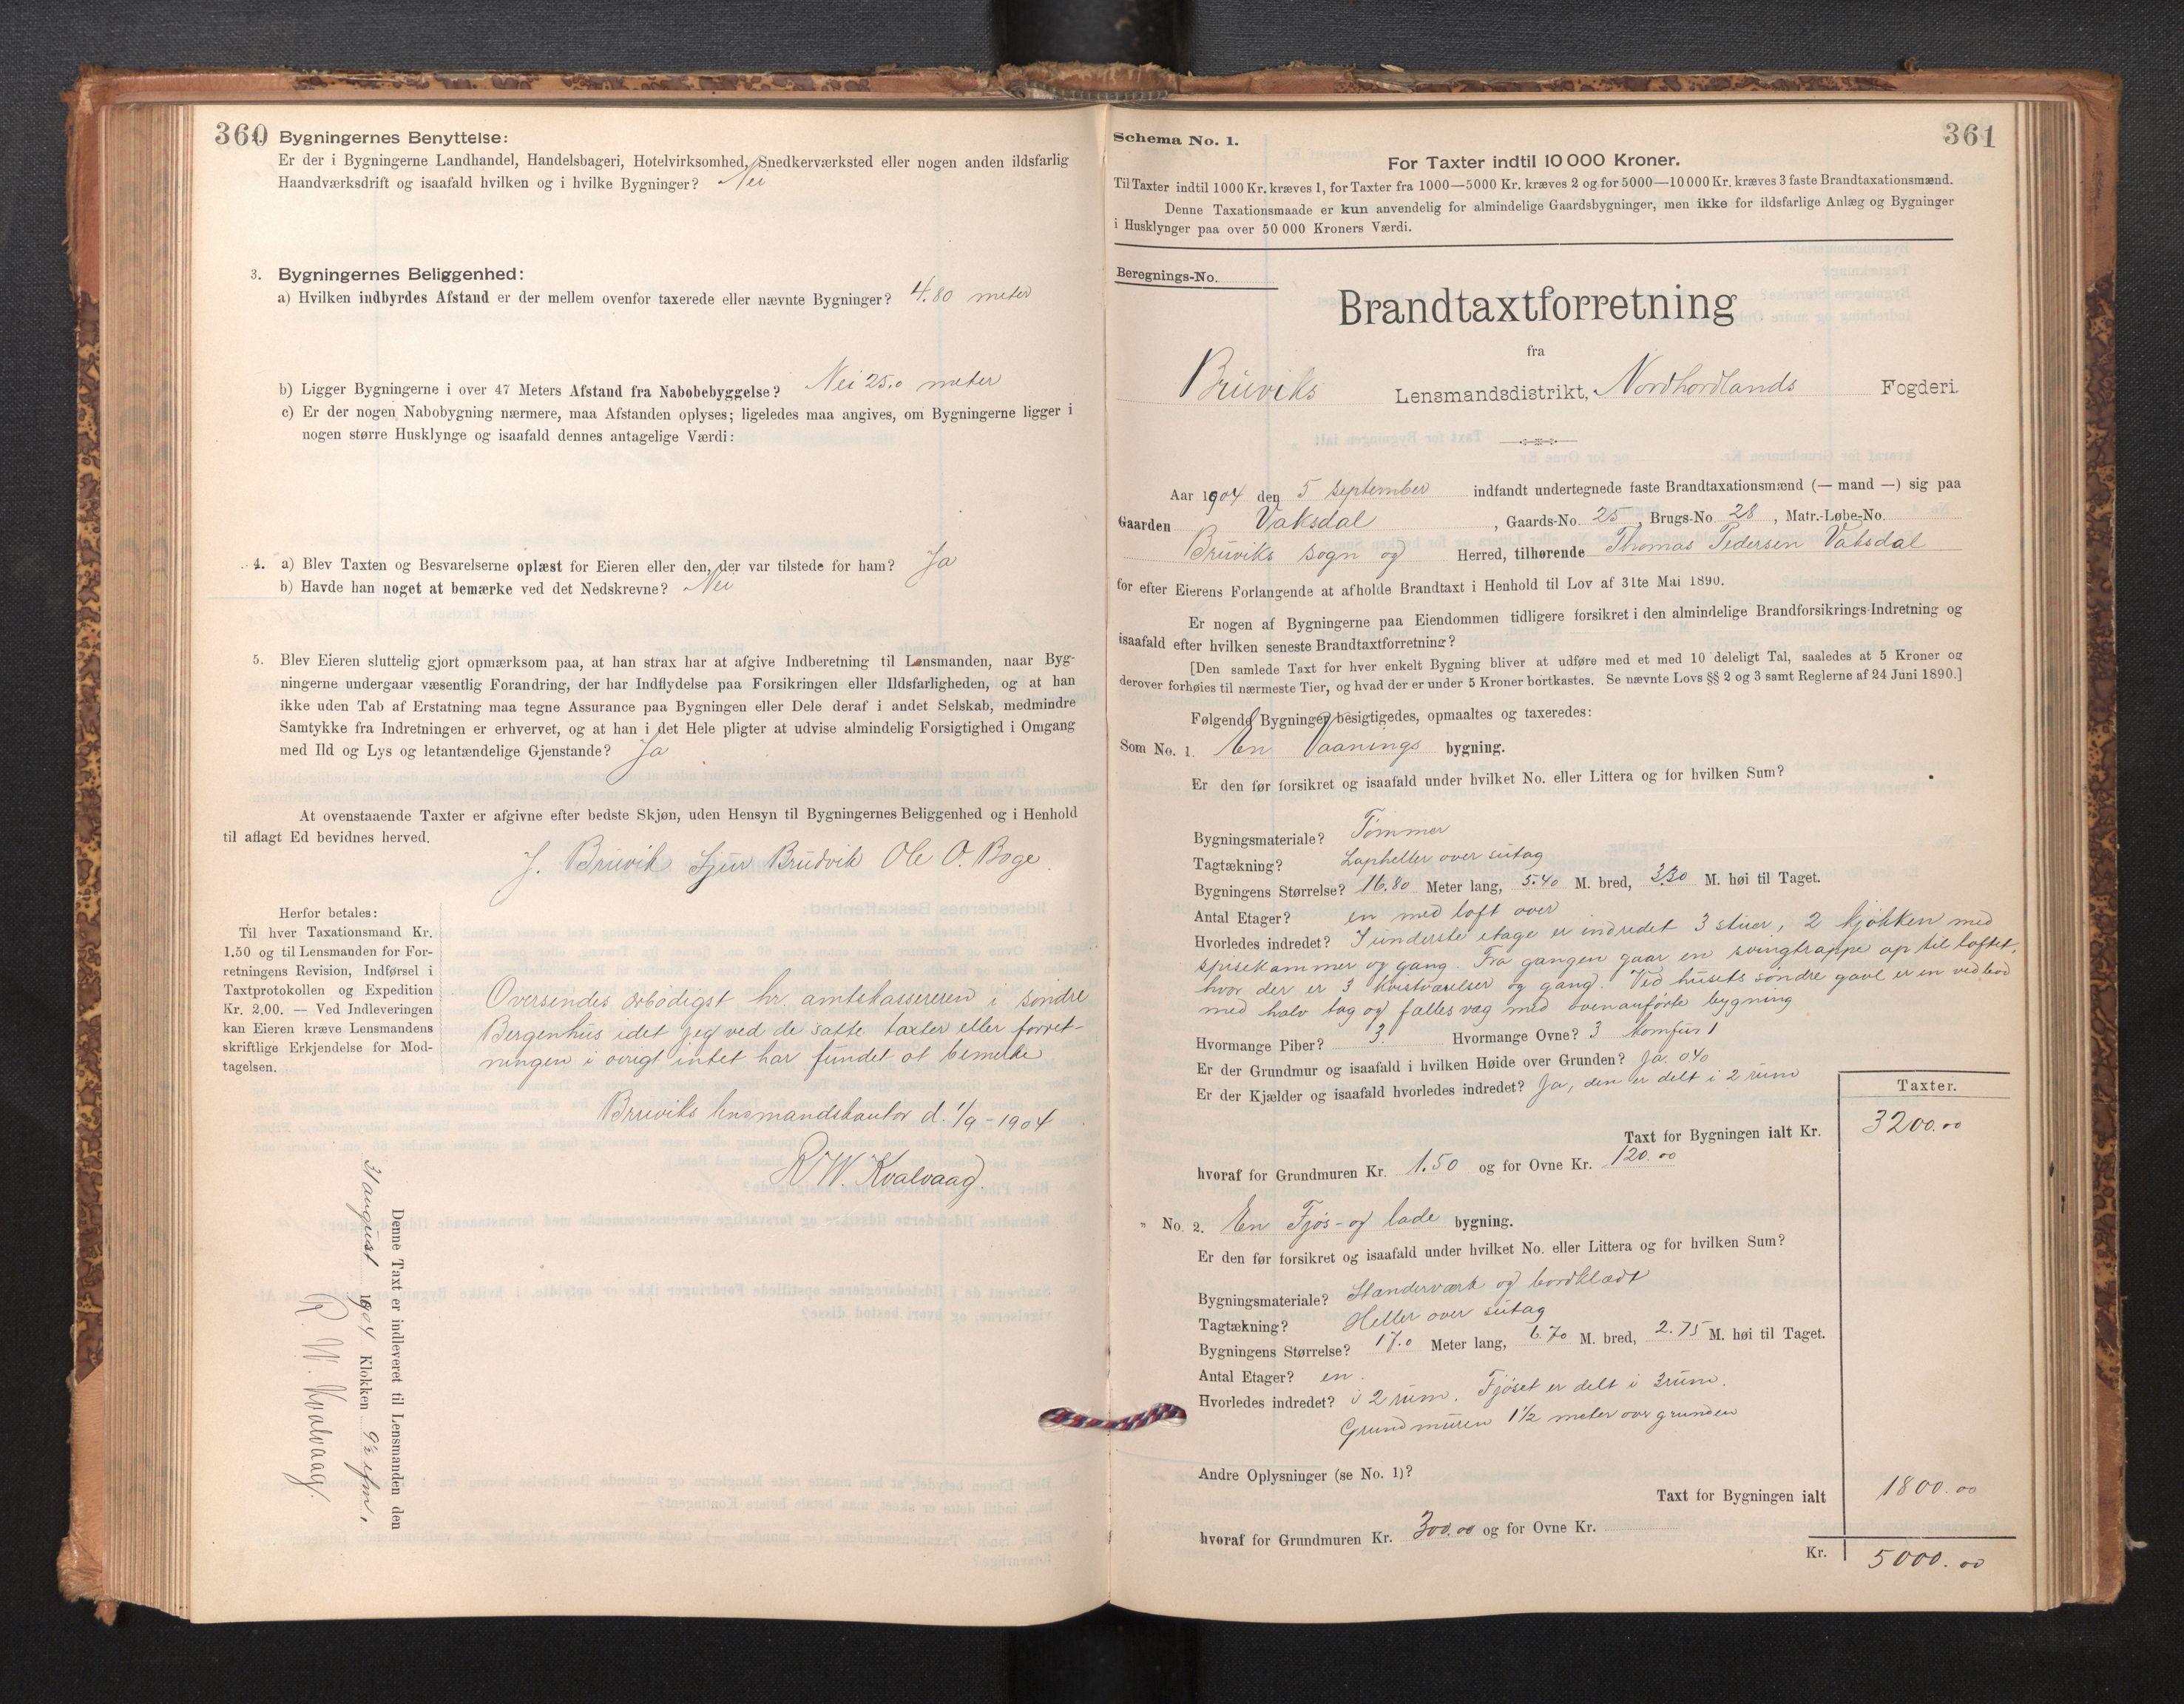 360
Bygningernes Benyttelse:
Er der i Bygningerne Landhandel, Handelsbageri, Hotelvirksomhed, Snedkerværksted eller nogen anden ildsfarlig
Haandværksdrift og isaafald hvilken og i hvilke Bygninger? Nei
3. Bygningernes Beliggenhed:
a) Hvilken indbyrdes Afstand er der mellem ovenfor taxerede eller nævnte Bygninger? 4.80 meter
b) Ligger Bygningerne i over 47 Meters Afstand fra Nabobebyggelse? Nei 25.0 meter
c) Er der nogen Nabobygning nærmere, maa Afstanden oplyses; ligeledes maa angives, om Bygningerne ligger i
nogen større Husklynge og isaafald dennes antagelige Værdi:
4. a) Blev Taxten og Besvarelserne oplæst for Eieren eller den, der var tilstede for ham? Ja
b) Havde han noget at bemærke ved det Nedskrevne? Nei
5. Blev Eieren sluttelig gjort opmærksom paa, at han strax har at afgive Indberetning til Lensmanden, naar Byg-
ningerne undergaar væsentlig Forandring, der har Indflydelse paa Forsikringen eller Ildsfarligheden, og at han
ikke uden Tab af Erstatning maa tegne Assurance paa Bygningen eller Dele deraf i andet Selskab, medmindre
Samtykke fra Indretningen er erhvervet, og at han i det Hele pligter at udvise almindelig Forsigtighed i Omgang
med Ild og Lys og letantændelige Gjenstande? Ja
At ovenstaaende Taxter er afgivne efter bedste Skjøn, uden Hensyn til Bygningernes Beliggenhed og i Henhold
til aflagt Ed bevidnes herved.
J. Bruvik Sjur Brudvik Ole O. Boge.
Herfor betales:
Til hver Taxationsmand Kr.
1.50 og til Lensmanden for For-
retningens Revision, Indførsel i
Taxtprotokollen og Expedition
Kr. 2.00. — Ved Indleveringen
kan Eieren kræve Lensmandens
skriftlige Erkjendelse for Mod-
tagelsen.
Oversendes ærbødigst hr. amtskassereren i søndre
Bergenhus idet jeg ved de satte taxter eller forret-
ningen i øvrigt intet har fundet at bemerke
Bruviks lensmandskontor d. 1/9-1904
R. W. Kvalvaag.
Denne Taxt er indleveret til Lensmanden den
31 august 1904 Klokken 9½ efm.
R. W. Kvalvaag.
Schema No. 1.
361
For Taxter indtil 10 000 Kroner.
Til Taxter indtil 1000 Kr. kræves 1, for Taxter fra 1000—5000 Kr. kræves 2 og for 5000—10 000 Kr. kræves 3 faste Brandtaxationsmænd.
Denne Taxationsmaade er kun anvendelig for almindelige Gaardsbygninger, men ikke for ildsfarlige Anlæg og Bygninger
i Husklynger paa over 50 000 Kroners Værdi.
Beregnings-No.
Brandtaxtforretning
fra
Bruviks Lensmandsdistrikt, Nordhordlands Fogderi.
Aar 1904 den 5 september indfandt undertegnede faste Brandtaxationsmænd (— mand —) sig paa
Gaarden Vaksdal, Gaards-No. 25, Brugs-No. 28, Matr.-Løbe-No.
Bruviks sogn og Herred, tilhørende Thomas Pedersen Vaksdal
for efter Eierens Forlangende at afholde Brandtaxt i Henhold til Lov af 31te Mai 1890.
Er nogen af Bygningerne paa Eiendommen tidligere forsikret i den almindelige Brandforsikrings-Indretning og
isaafald efter hvilken seneste Brandtaxtforretning?
[Den samlede Taxt for hver enkelt Bygning bliver at udføre med et med 10 deleligt Tal, saaledes at 5 Kroner og
derover forhøies til nærmeste Tier, og hvad der er under 5 Kroner bortkastes. Se nævnte Lovs §§ 2 og 3 samt Reglerne af 24 Juni 1890.]
Følgende Bygninger besigtigedes, opmaaltes og taxeredes:
Som No. 1. En Vaanings bygning.
Er den før forsikret og isaafald under hvilket No. eller Littera og for hvilken Sum?
Bygningsmateriale? Tømmer
Tagtækning? Lapheller over sutag
Bygningens Størrelse? 16.80 Meter lang, 5.40 M. bred, 3.30 M. høi til Taget.
Antal Etager? en med loft over
Hvorledes indredet? I underste etage er indredet 3 stuer, 2 kjøkken med
spisekammer og gang. Fra gangen gaar en svingtrappe op til loftet,
hvor der er 3 kvistværelser og gang. Ved husets søndre gavl er en vedbod
med halv tag og fælles væg med ovenanførte bygning
Hvormange Piber? 3. Hvormange Ovne? 3 Komfur 1
Er der Grundmur og isaafald i hvilken Høide over Grunden? Ja. 0.40
Er der Kjælder og isaafald hvorledes indredet? Ja, den er delt i 2 rum
Taxter.
Taxt for Bygningen ialt Kr. 3200.00
hvoraf for Grundmuren Kr. 1.50 og for Ovne Kr. 120.00
" No. 2. En Fjøs- og lade bygning.
Er den før forsikret og isaafald under hvilket No. eller Littera og for hvilken Sum?
Bygningsmateriale? Standerværk og bordklædt
Tagtækning? Heller over sutag
Bygningens Størrelse? 17.0 Meter lang, 6.70 M. bred, 2.75 M. høi til Taget.
Antal Etager? en.
Hvorledes indredet? i 2 rum. Fjøset er delt i 3 rum.
Grundmuren 1½ meter over grunden
Andre Oplysninger (se No. 1)?
Taxt for Bygningen ialt 1800.00
hvoraf for Grundmuren Kr. 300.00 og for Ovne Kr.
Kr. 5000.00